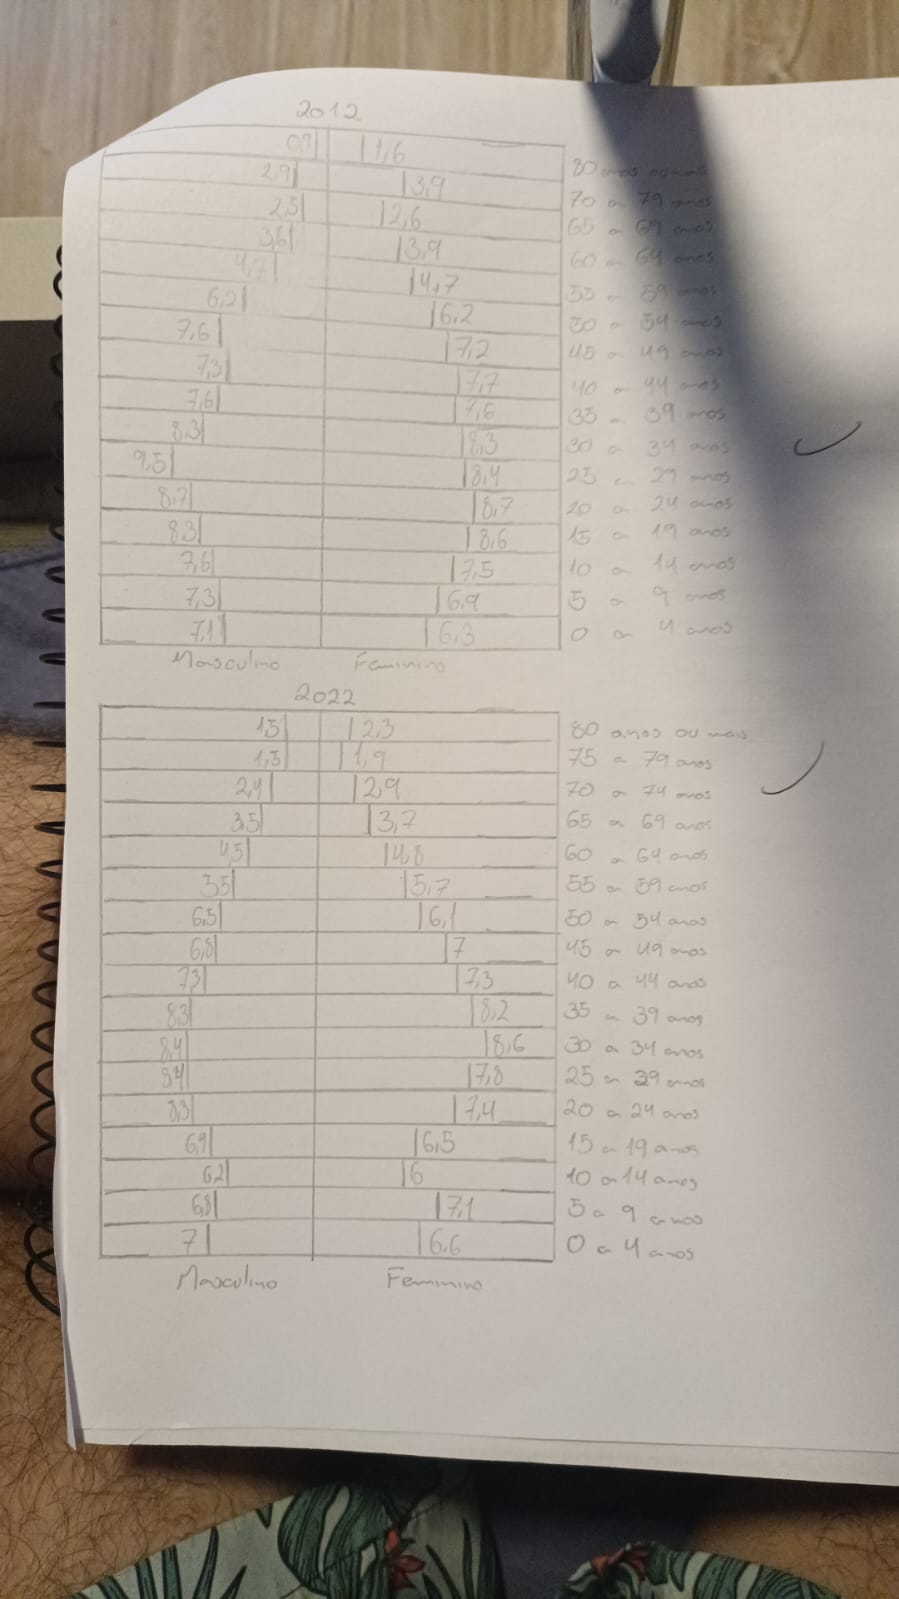 2012
0,9 1,6 80 anos ou mais
2,9 3,9 70 a 79 anos
2,5 2,6 65 a 69 anos
3,6 3,9 60 a 64 anos
4,7 4,7 55 a 59 anos
6,2 6,2 50 a 54 anos
7,6 7,2 45 a 49 anos
7,3 7,7 40 a 44 anos
7,6 7,6 35 a 39 anos
8,3 8,3 30 a 34 anos
9,5 8,4 25 a 29 anos
8,7 8,7 20 a 24 anos
8,3 8,6 15 a 19 anos
7,6 7,5 10 a 14 anos
7,3 6,9 5 a 9 anos
7,1 6,3 0 a 4 anos
Masculino Feminino
2022
1,5 2,3 80 anos ou mais
1,5 1,9 75 a 79 anos
2,4 2,9 70 a 74 anos
3,5 3,7 65 a 69 anos
4,5 4,8 60 a 64 anos
5,5 5,7 55 a 59 anos
6,5 6,1 50 a 54 anos
6,8 7 45 a 49 anos
7,3 7,3 40 a 44 anos
8,3 8,2 35 a 39 anos
8,4 8,6 30 a 34 anos
8,4 7,8 25 a 29 anos
8,3 7,4 20 a 24 anos
6,9 6,5 15 a 19 anos
6,2 6 10 a 14 anos
6,8 7,1 5 a 9 anos
7 6,6 0 a 4 anos
Masculino Feminino